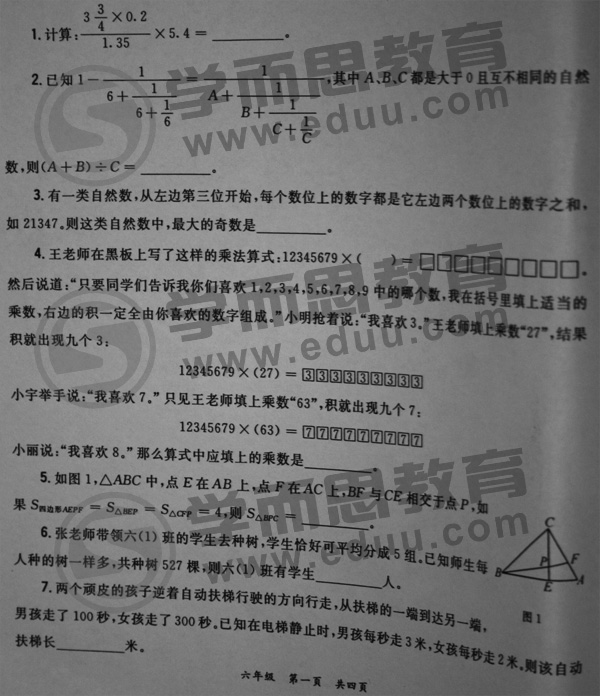 1.计算:(3 3/4×0.2)/1.35×5.4=________。
2.已知1-1/(6+1/(6+1/6))=1/(A+1/(B+1/(C+1/C))),其中A、B、C都是大于0且互不相同的自然
数,则(A+B)÷C=________。
3.有一类自然数,从左边第三位开始,每个数位上的数字都是它左边两个数位上的数字之和,
如21347。则这类自然数中,最大的奇数是________。
4.王老师在黑板上写了这样的乘法算式:12345679×(  )=□□□□□□□□□。
然后说道:“只要同学们告诉我你们喜欢1,2,3,4,5,6,7,8,9中的哪个数,我在括号里填上适当的
乘数,右边的积一定全由你喜欢的数字组成。”小明抢着说:“我喜欢3。”王老师填上乘数“27”,结果
积就出现九个3:
12345679×(27)=333333333
小宇举手说:“我喜欢7。”只见王老师填上乘数“63”,积就出现九个7:
12345679×(63)=777777777
小丽说:“我喜欢8。”那么算式中应填上的乘数是________。
5.如图1,△ABC中,点E在AB上,点F在AC上,BF与CE相交于点P,如
果S四边形AEPF=S△BEP=S△CFP=4,则S△BPC=________。
6.张老师带领六(1)班的学生去种树,学生恰好可平均分成5组。已知师生每
人种的树一样多,共种树527棵,则六(1)班有学生________人。
C
P
F
B
E
A
图1
7.两个顽皮的孩子逆着自动扶梯行驶的方向行走,从扶梯的一端到达另一端,
男孩走了100秒,女孩走了300秒。已知在电梯静止时,男孩每秒走3米,女孩每秒走2米。则该自动
扶梯长________米。
六年级 第一页 共四页
学而思教育
www.eduu.com
学而思教育
www.eduu.com
学而思教育
www.eduu.com